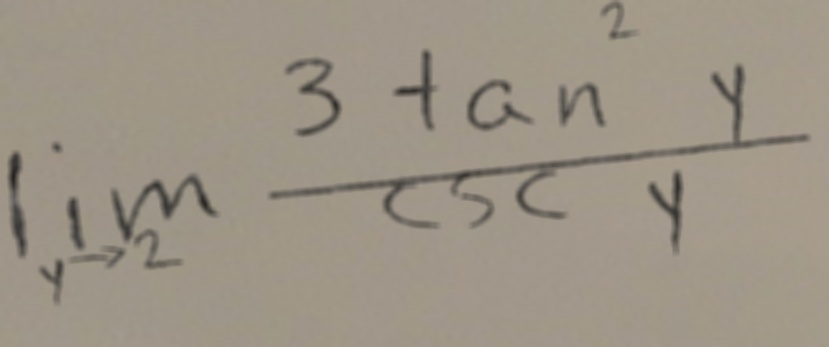 lim y→2 3 tan² y / csc y